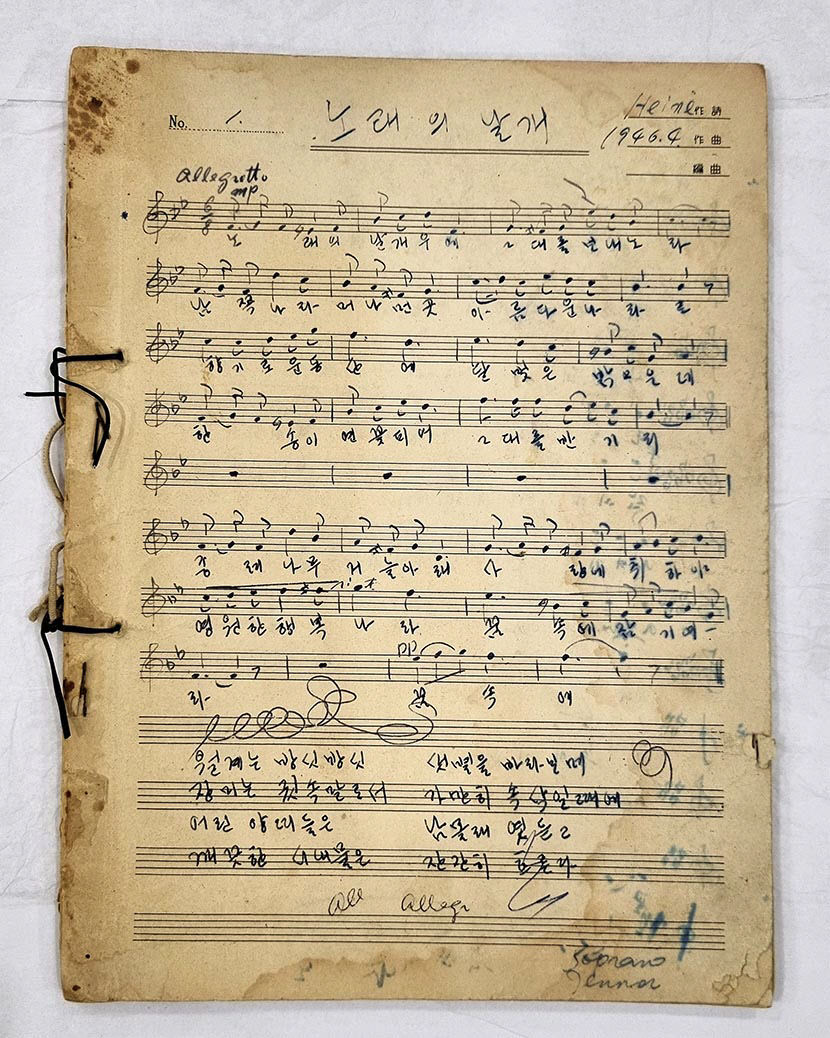 No. 1. 노래의 날개 Heine 作詩
1946.4 作曲
編曲
Allegretto
mp
노 래의 날개우에 그대를보내노라
남쪽나라 머나먼곳 아-름다운나라로
향기로운동산에 달빛은 밝은데
한 송이 연꽃피며 그대를반기리
종려나무 거늘아래 사랑에 취하야
영원한행복나라 꿈 속에 잠기여-
라- 꿈 속에
방싯방싯 샛별을 바라보며
장미는 귓속말로서 가만히 속삭일때에
어린 양떼들은 남몰래 엿듣고
깨끗한 시내물은 잔잔히 흐른다
All Allegr
Soprano
Tennor